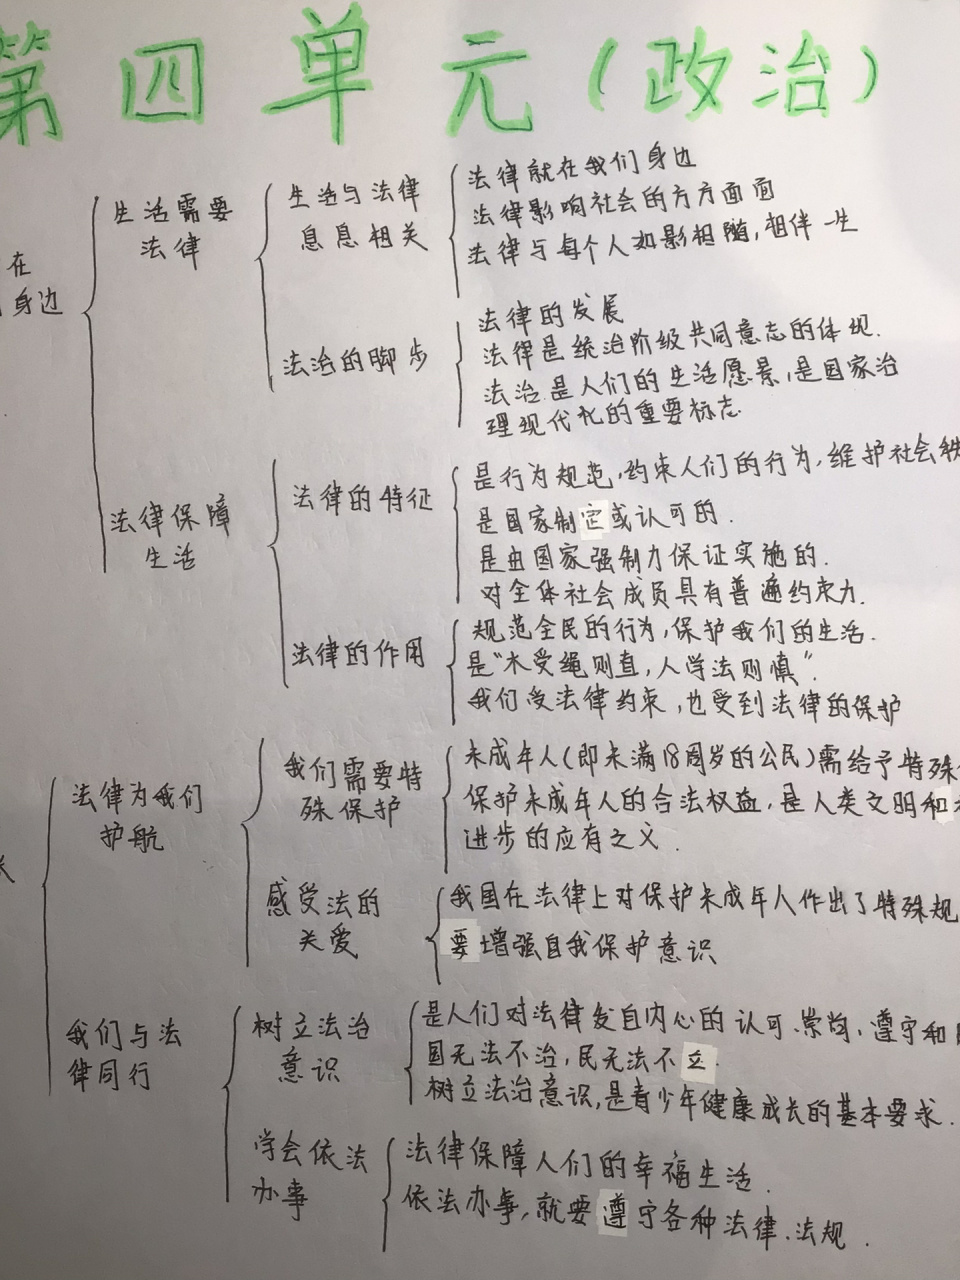 第四单元(政治)
生活需要
法律
生活与法律
息息相关
法律就在我们身边
法律影响社会的方方面面
法律与每个人如影相随,相伴一生
在
身边
法治的脚步
法律的发展
法律是统治阶级共同意志的体现.
法治是人们的生活愿景,是国家治
理现代化的重要标志
法律保障
生活
法律的特征
是行为规范,约束人们的行为,维护社会秩
是国家制定或认可的.
是由国家强制力保证实施的.
对全体社会成员具有普遍约束力.
法律的作用
规范全民的行为,保护我们的生活.
是"木受绳则直,人学法则慎".
我们受法律约束,也受到法律的保护
法律为我们
护航
我们需要特
殊保护
未成年人(即未满18周岁的公民)需给予特殊
保护未成年人的合法权益,是人类文明和
进步的应有之义.
感受法的
关爱
我国在法律上对保护未成年人作出了特殊规
要增强自我保护意识
我们与法
律同行
树立法治
意识
是人们对法律发自内心的认可、崇尚,遵守和
国无法不治,民无法不立.
树立法治意识,是青少年健康成长的基本要求.
学会依法
办事
法律保障人们的幸福生活.
依法办事,就要遵守各种法律、法规.